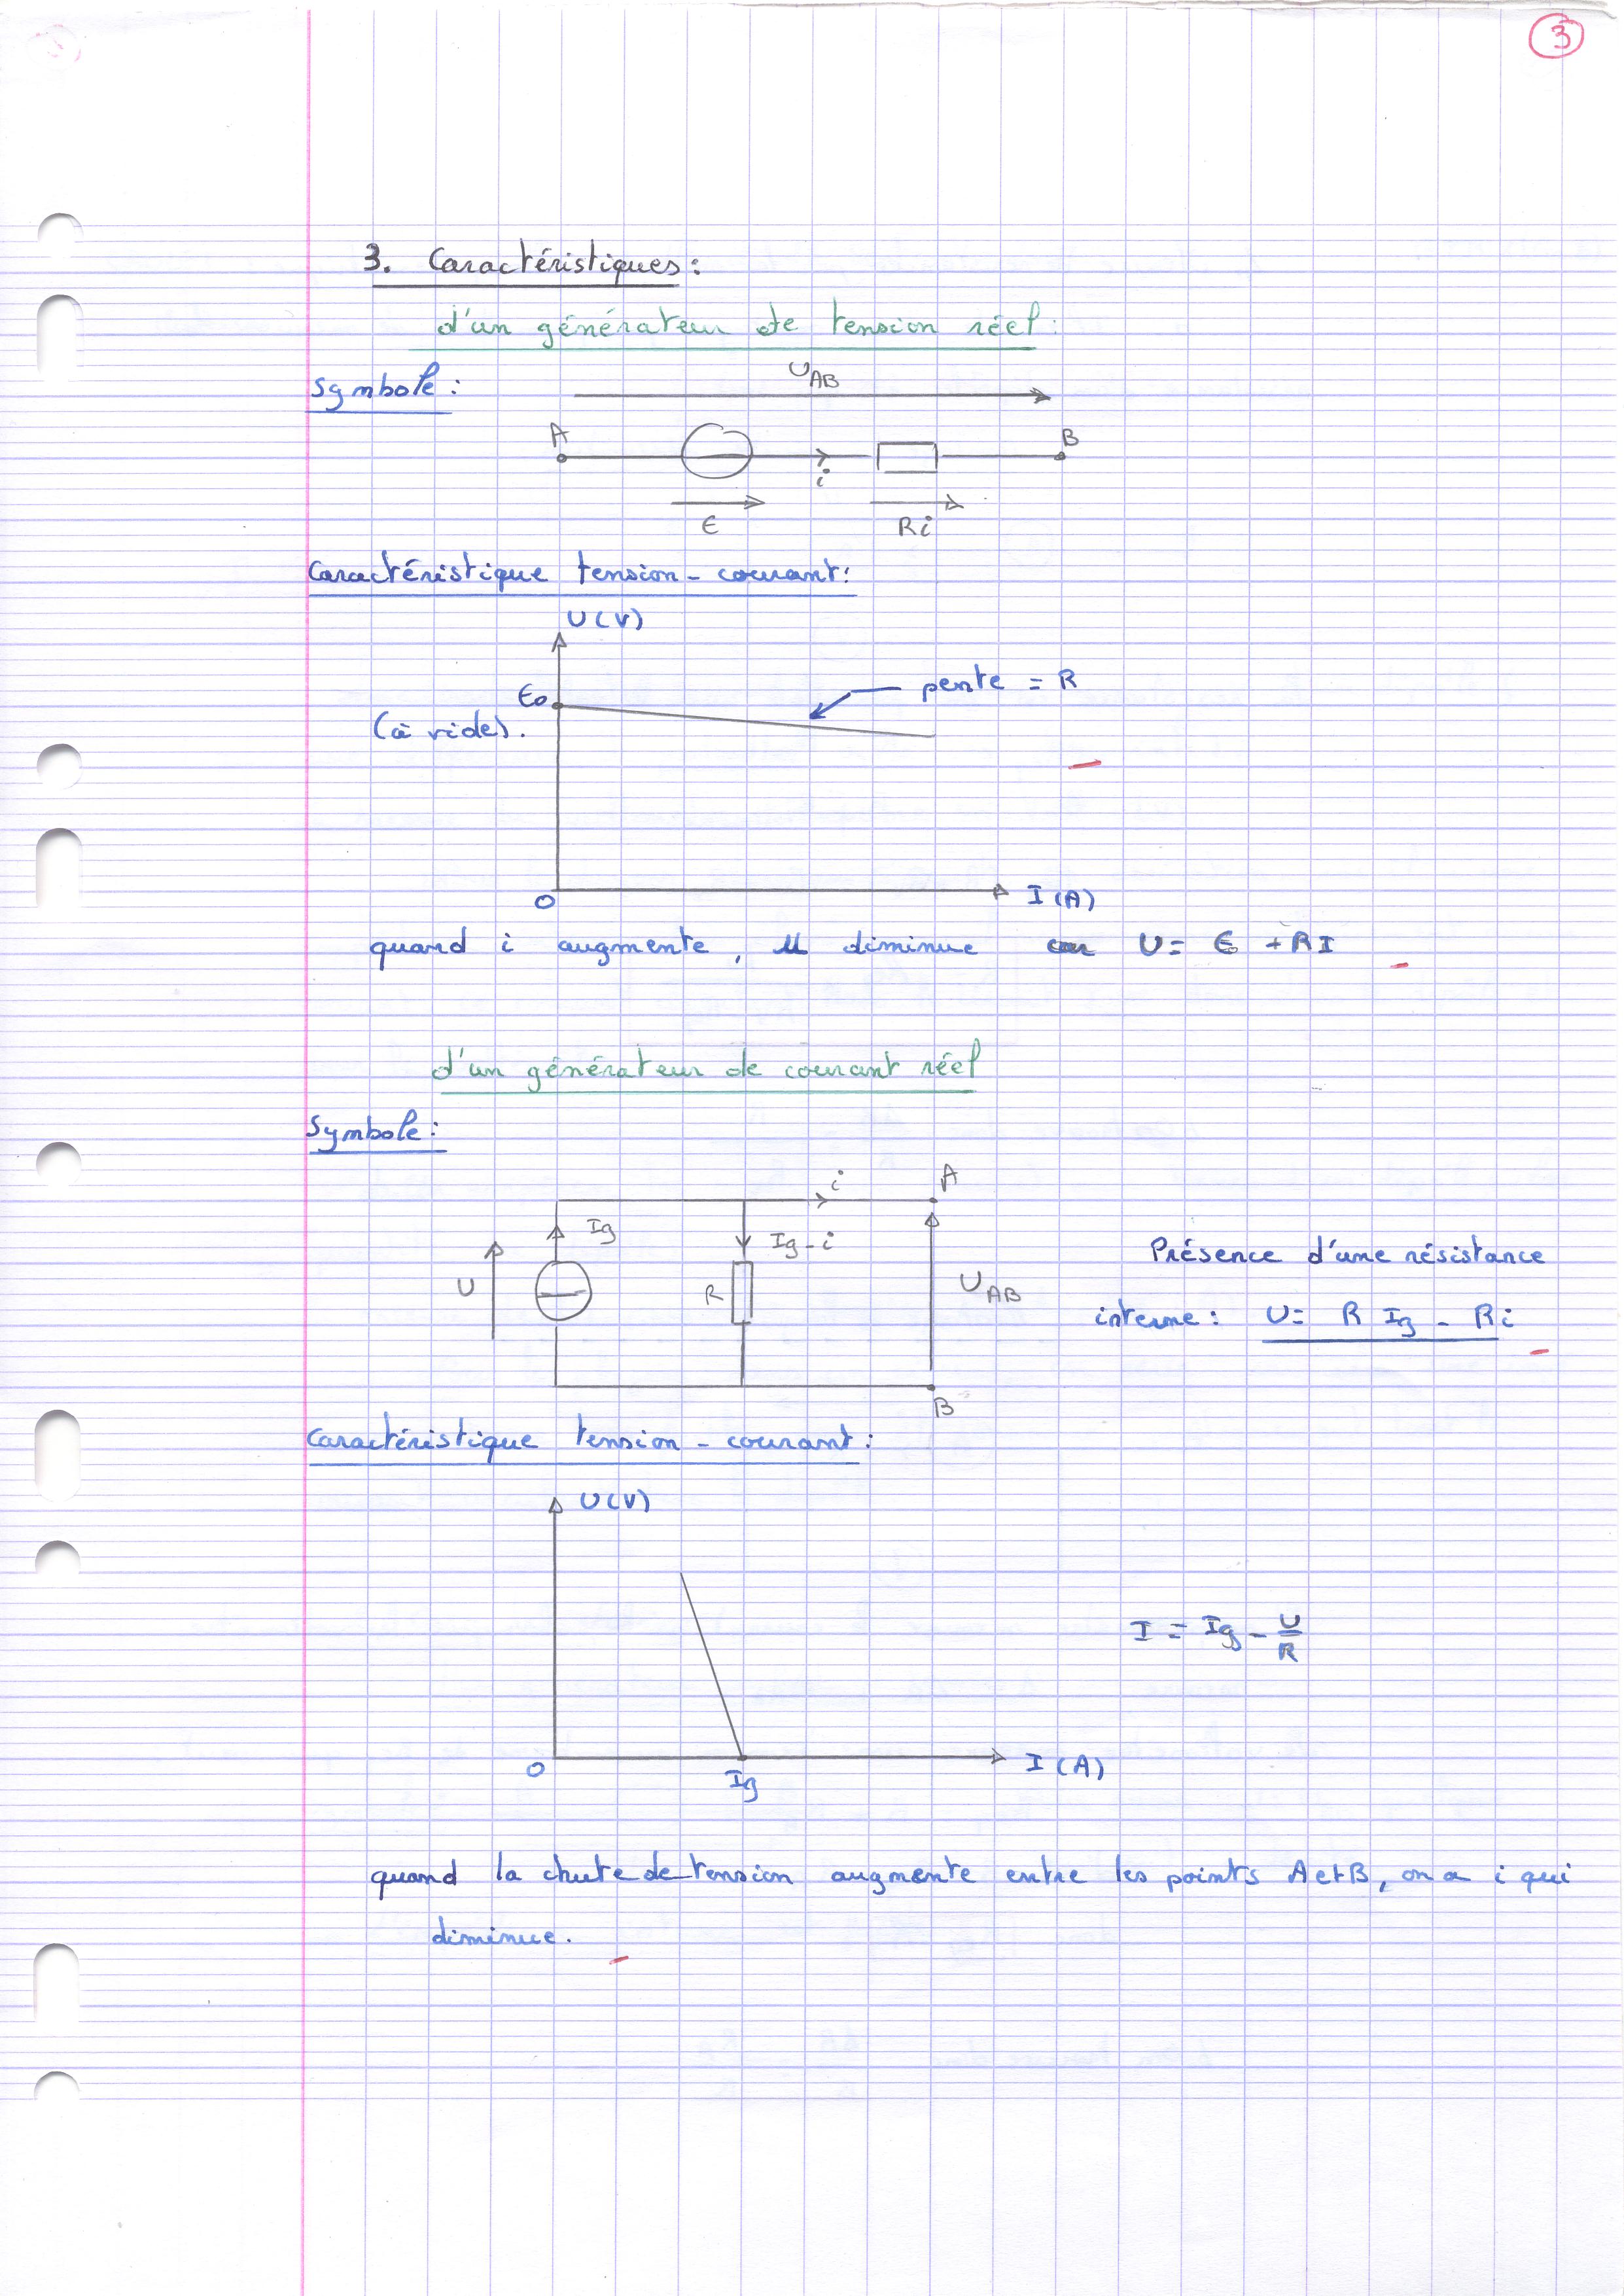 3
3. Caractéristiques :
d'un générateur de tension réel :
Symbole :
U AB
A
B
i
E
Ri
Caractéristique tension - courant :
U (V)
E0
pente = R
(à vide).
O
I (A)
quand i augmente, U diminue car U = E0 + RI
d'un générateur de courant réel
Symbole :
i
A
Ig
Ig - i
U
R
U AB
Présence d'une résistance
interne : U = R Ig - Ri
B
Caractéristique tension - courant :
U (V)
I = Ig - U/R
O
Ig
I (A)
quand la chute de tension augmente entre les points A et B, on a i qui
diminue.